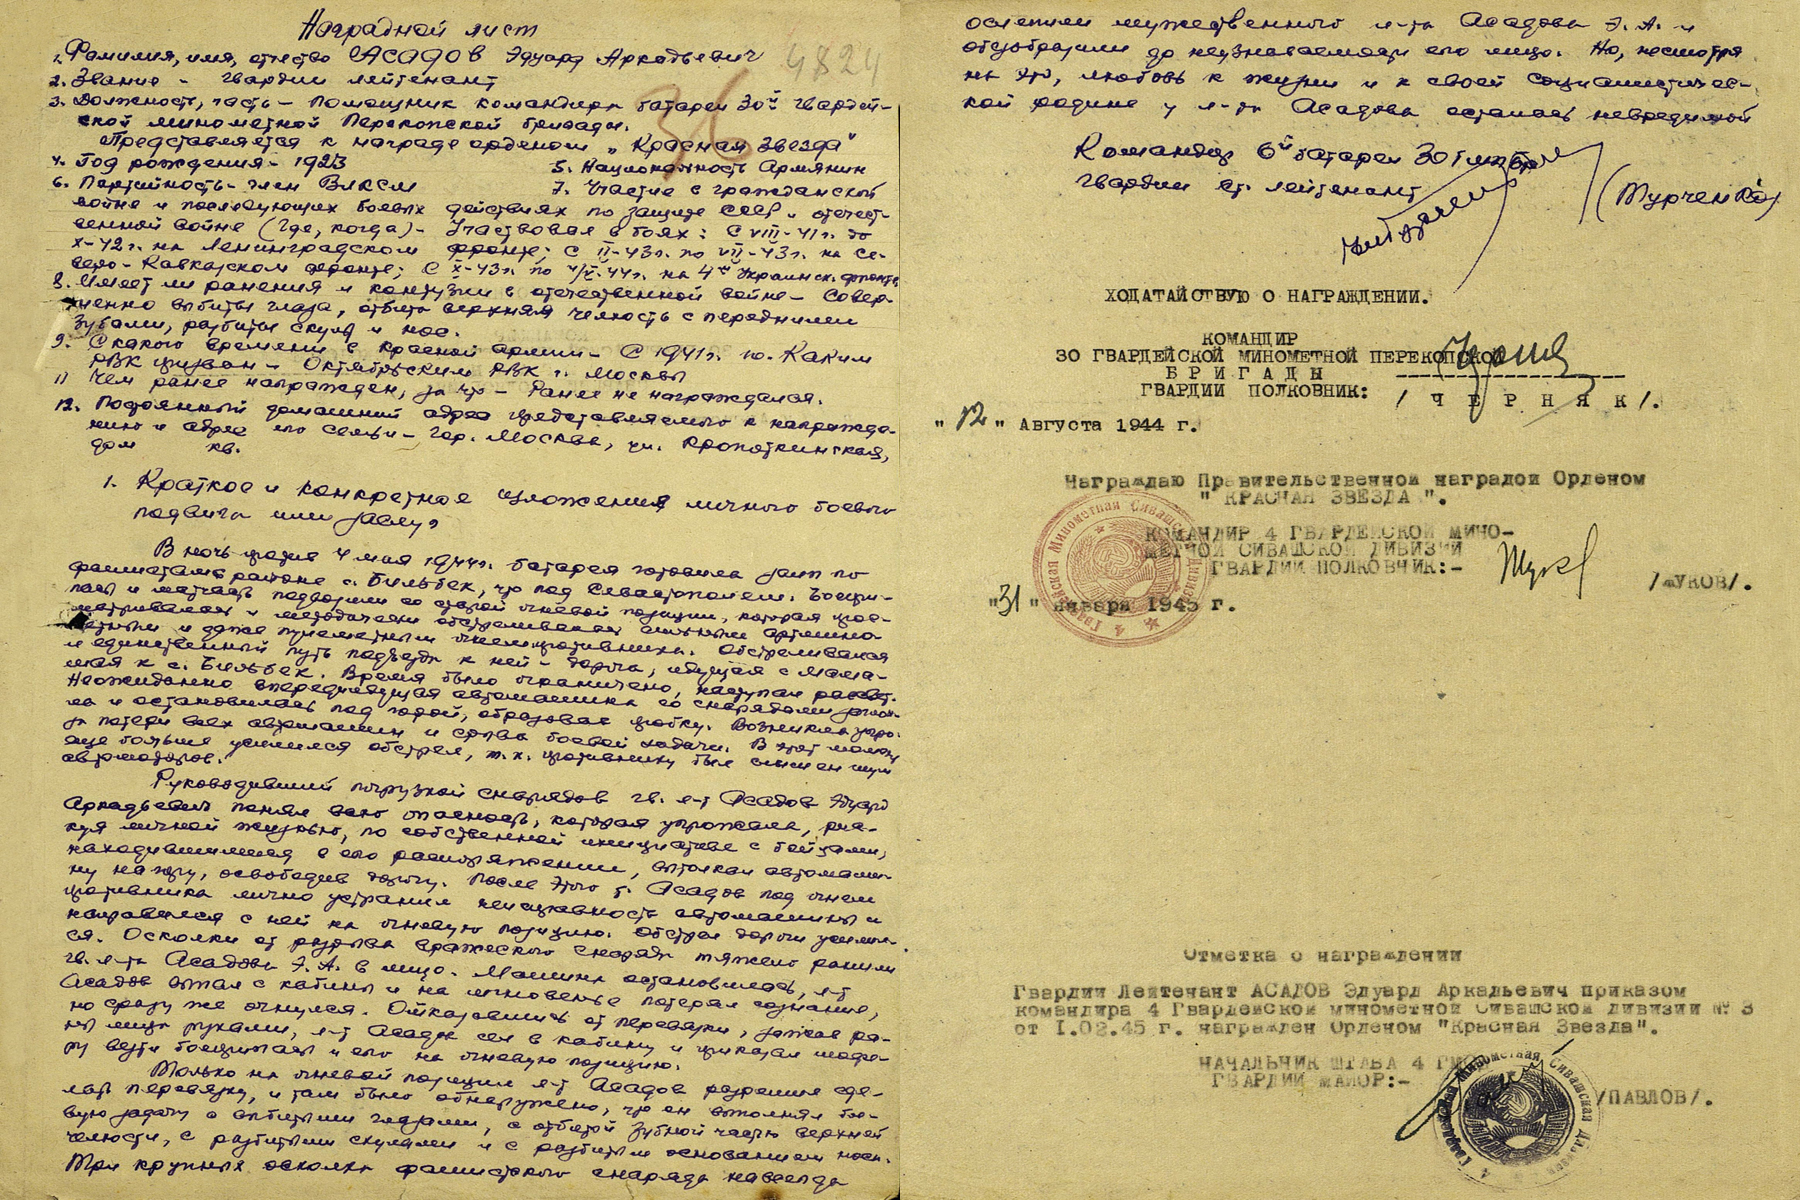 Наградной лист
1. Фамилия, имя, отчество АСАДОВ Эдуард Аркадьевич
4824
2. Звание – гвардии лейтенант
3. Должность, часть – Помощник командира батареи 30й гвардей-
ской минометной Перекопской бригады.
36
Представляется к награде орденом „Красная Звезда"
4. Год рождения – 1923
5. Национальность Армянин
6. Партийность – член ВЛКСМ
7. Участие в гражданской
войне и последующих боевых действиях по защите СССР и отечест-
венной войне (где, когда) – Участвовал в боях: С VIII-41г. до
X-42г. на Ленинградском фронте; С II-43г. по VII-43г. на Се-
веро-Кавказском фронте; С X-43г. по 4/V-44г. на 4м Украинск. фронте
8. Имеет ли ранения и контузии в отечественной войне – Совер-
шенно выбиты глаза, отбита верхняя челюсть с передними
зубами, разбиты скулы и нос.
9. С какого времени в Красной армии – С 1941г. 10. Каким
РВК призван – Октябрьским РВК г. Москвы
11 Чем ранее награжден, за что – Ранее не награждался.
12. Постоянный домашний адрес представляемого к награжде-
нию и адрес его семьи – гор. Москва, ул. Кропоткинская,
дом кв.
1. Краткое и конкретное изложения личного боевого
подвига или заслуг
В ночь против 4 мая 1944г. батарея готовила залп по
фашистам в районе с. Бельбек, что под Севастополем. Боепри-
пасы и матчасть подвозили со старой огневой позиции, которая прос-
матривалась и методически обстреливалась сильным артиллерий-
и даже минометным огнем противника. Обстреливался
и единственный путь подъезда к ней – дорога, идущая с Мама-
шая к с. Бельбек. Время было ограничено, наступал рассвет.
Неожиданно впередиидущая автомашина со снарядами заглох-
ла и остановилась под горой, образовав пробку. Возникла угро-
за потери всех автомашин и срыва боевой задачи. В этот момент
еще больше усилился обстрел, т.к. противнику был слышен шум
автомоторов.
Руководивший погрузкой снарядов гв. л-т Асадов Эдуард
Аркадьевич понял всю опасность, которая угрожала, рис-
куя личной жизнью, по собственной инициативе с бойцами,
находившимися в его распоряжении, вытолкал автомаши-
ну на гору, освободив дорогу. После этого т. Асадов под огнем
противника лично устранил неисправность автомашины и
направился с ней на огневую позицию. Обстрел дороги усили-
ся. Осколки от разрыва вражеского снаряда тяжело ранили
гв. л-та Асадова Э. А. в лицо. Машина остановилась, л-т
Асадов выпал с кабины и на мгновенье потерял сознание,
но сразу же очнулся. Отказавшись от перевязки, зажав ра-
ны лица руками, л-т Асадов сел в кабину и приказал шофе-
ру везти боеприпасы и его на огневую позицию.
Только на огневой позиции л-т Асадов разрешил сде-
лать перевязку, и там было обнаружено, что он выполнял бое-
вую задачу с выбитыми глазами, с отбитой зубной частью верхней
челюсти, с разбитыми скулами и с разбитым основанием носа.
Три крупных осколка фашистского снаряда навсегда
ослепили мужественного л-та Асадова Э. А. и
обезобразили до неузнаваемости его лицо. Но, несмотря
на это, любовь к жизни и к своей социалистичес-
кой родине у л-та Асадова осталась невредимой
Командир 6й батареи 30 Гв.
гвардии ст. лейтенант
(Турченко)
ХОДАТАЙСТВУЮ О НАГРАЖДЕНИИ.
КОМАНДИР
30 ГВАРДЕЙСКОЙ МИНОМЕТНОЙ ПЕРЕКОПСКОЙ
БРИГАДЫ
ГВАРДИИ ПОЛКОВНИК:
/ЧЕРНЯК/.
"12" Августа 1944 г.
Награждаю Правительственной наградой Орденом
" КРАСНАЯ ЗВЕЗДА ".
КОМАНДИР 4 ГВАРДЕЙСКОЙ МИНО-
МЕТНОЙ СИВАШСКОЙ ДИВИЗИИ
ГВАРДИИ ПОЛКОВЧИК:-
/ЖУКОВ/.
"31" января 1945 г.
4 Гвардейская Минометная Сивашская Дивизия
Отметка о награждении
Гвардии Лейтенант АСАДОВ Эдуард Аркадьевич приказом
командира 4 Гвардейской минометной Сивашской дивизии № 3
от 1.02.45 г. награжден Орденом "Красная Звезда".
НАЧАЛЬНИК ШТАБА 4 ГМ
ГВАРДИИ МАЙОР:-
/ПАВЛОВ/.
4 Гвардейская Минометная Сивашская Дивизия